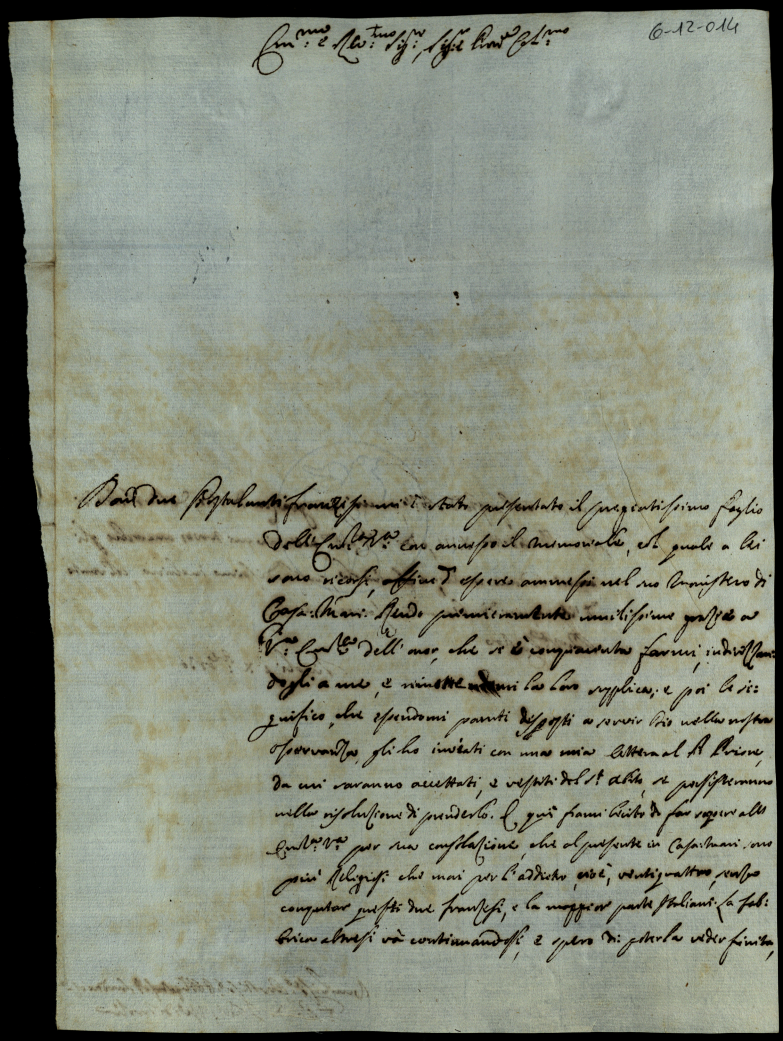 6-12-014
Em.mo e Rev.mo Sig.re, Sig.re Pron.e Col.mo
Da i due Postulanti francesi mi è stato presentato il pregiatissimo foglio
dell'Em.za V.ra con annesso il memoriale, col quale a lei
sono ricorsi, affine d'essere ammessi nel suo Monistero di
Casa-Mari. Rendo primieramente umilissime grazie a
V.ra Em.za dell'onor, che si è compiaciuta farmi, indirizzan-
dogli a me, e rimettendomi la loro supplica; e poi le si-
gnifico, che essendomi paruti disposti a servir Dio nella nostra
osservanza, gli ho inviati con una mia lettera al P. Priore,
da cui saranno accettati, e vestiti del S.to abito, se persisteranno
nella risoluzione di prenderlo. E qui siami lecito di far sapere all'
Em.za V.ra per sua consolazione, che al presente in Casamari sono
più Religiosi che mai per l'addietro, cioè, ventiquattro, senza
computar questi due francesi, e la maggior parte Italiani. La fab-
brica altresì và continuandosi, e spero di poterla veder finita,